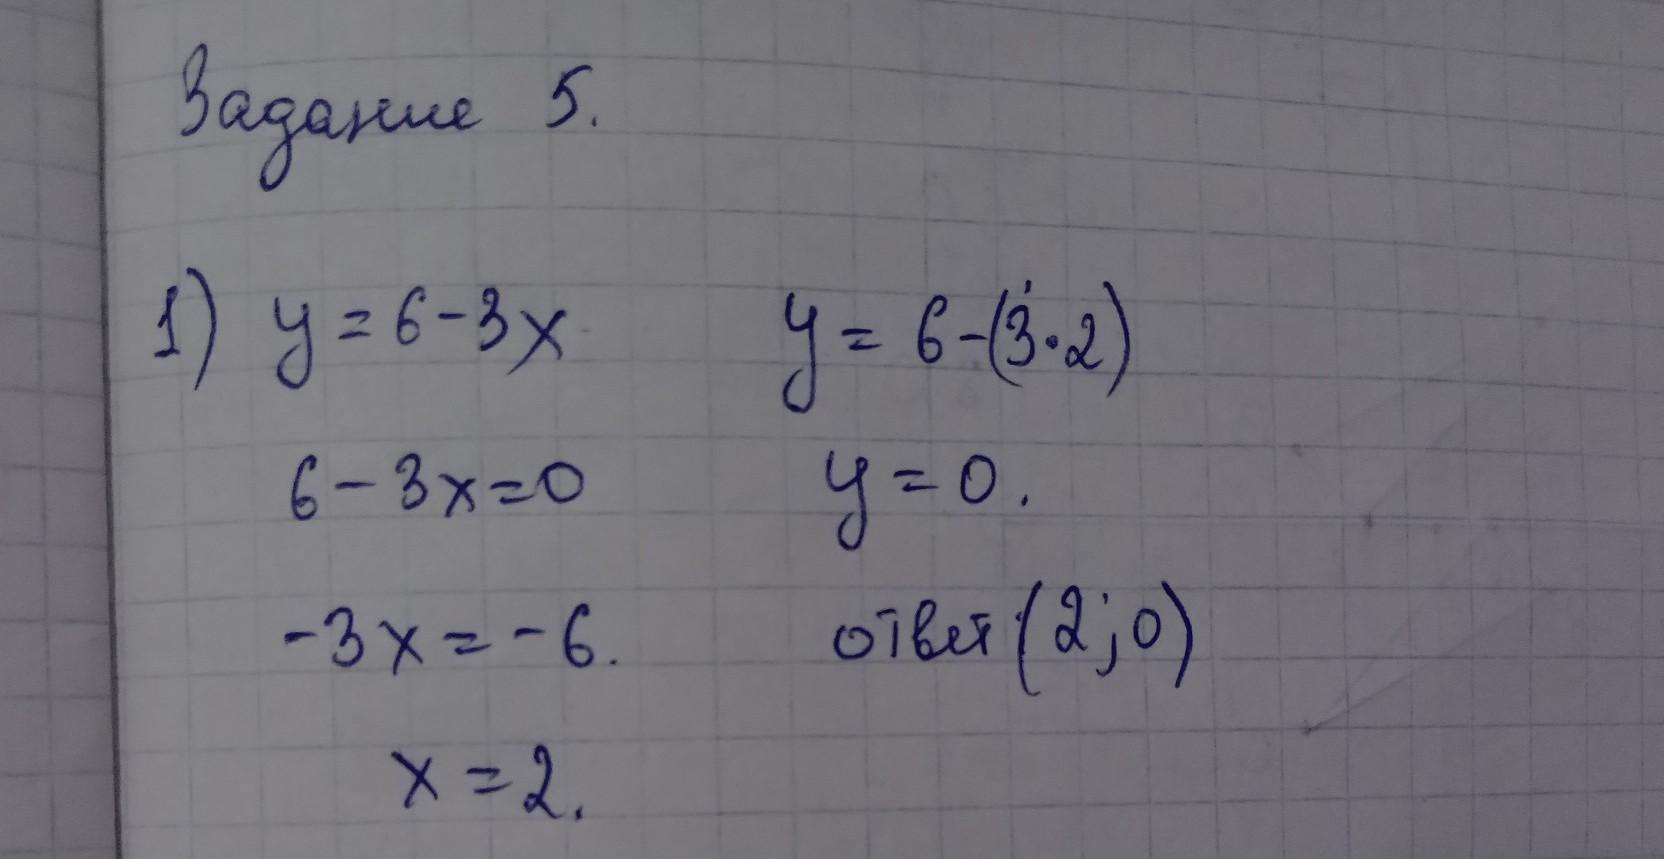 Задание 5.
1) y = 6 - 3x
6 - 3x = 0
-3x = -6.
x = 2.
y = 6 - (3 · 2)
y = 0.
ответ (2; 0)